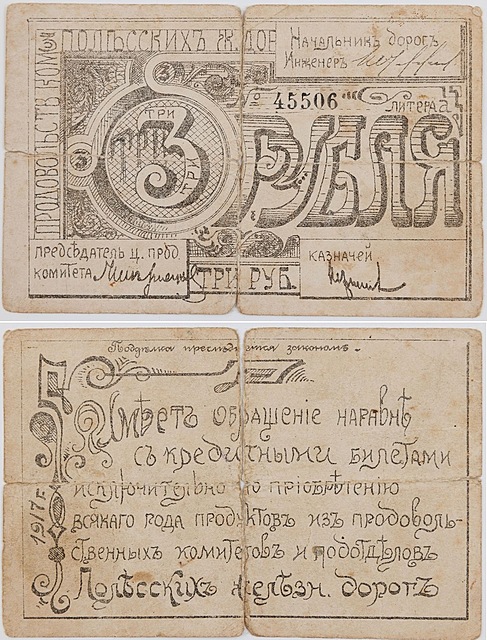 ПРОДОВОЛЬСТВ. КОМ.
ПОЛѢССКИХЪ Ж. ДОР.
Начальникъ дорогъ
Инженеръ
№ 45506
ЛИТЕРА
3
3
ТРИ
3
ТРИ
РУБЛЯ
3
ПРЕДСѢДАТЕЛЬ Ц. ПРОД.
КОМИТЕТА
ТРИ РУБ.
КАЗНАЧЕЙ
Поддѣлка преслѣдуется закономъ.
1917 г.
Имѣетъ обращеніе наравнѣ
съ кредитными билетами
исключительно по пріобрѣтенію
всякаго рода продуктовъ изъ продоволь-
ственныхъ комитетовъ и подотдѣловъ
Полѣсскихъ желѣзн. дорогъ